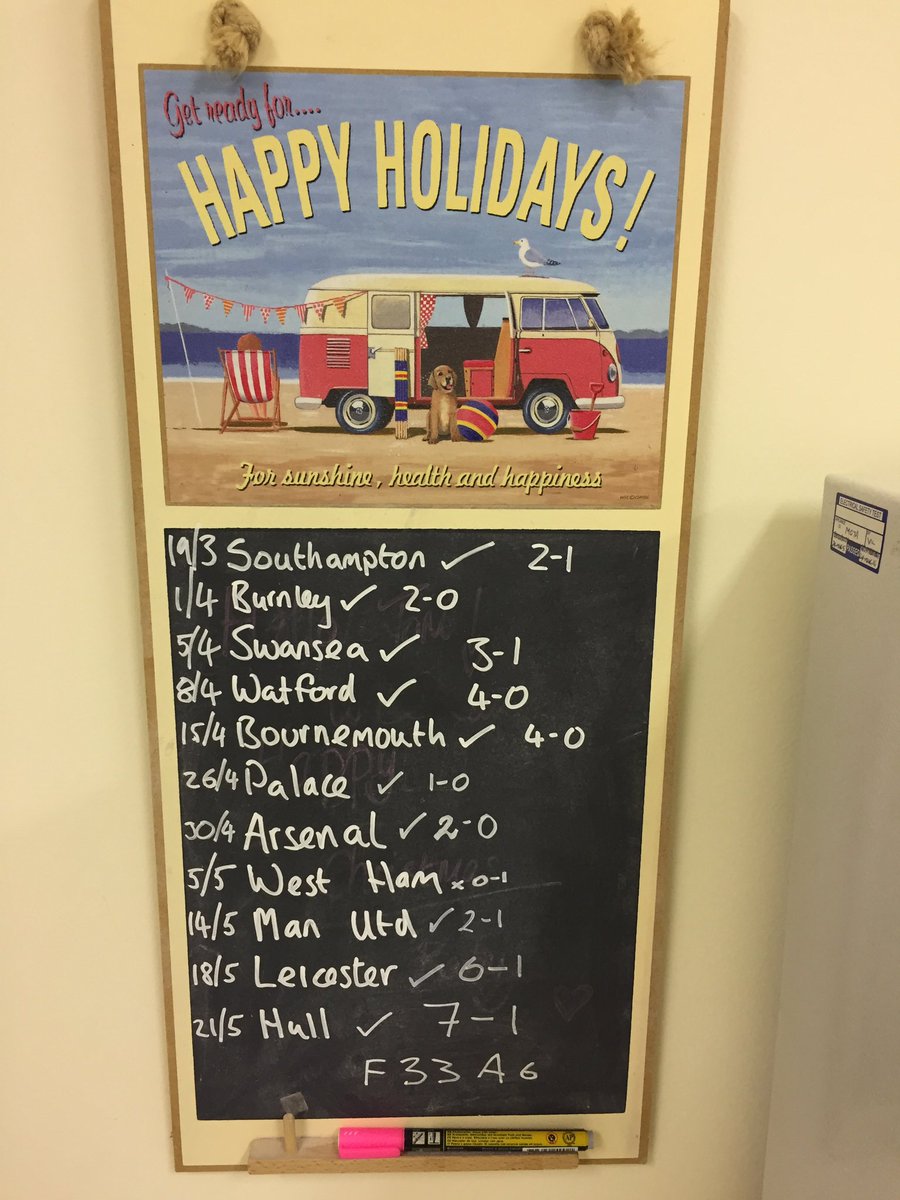 Get ready for....
HAPPY HOLIDAYS!
For sunshine, health and happiness
19/3 Southampton ✓ 2-1
1/4 Burnley ✓ 2-0
5/4 Swansea ✓ 3-1
8/4 Watford ✓ 4-0
15/4 Bournemouth ✓ 4-0
26/4 Palace ✓ 1-0
30/4 Arsenal ✓ 2-0
5/5 West Ham x 0-1
14/5 Man Utd ✓ 2-1
18/5 Leicester ✓ 6-1
21/5 Hull ✓ 7-1
F 33 A 6
ELECTRICAL SAFETY TEST